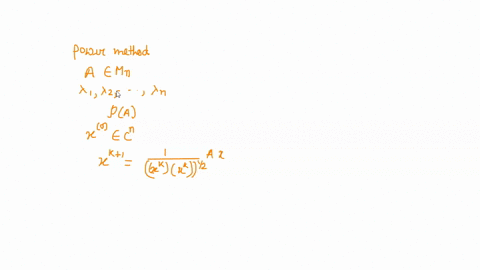 power method
A ∈ Mn
λ1, λ2, ..., λn
ρ(A)
x^(0) ∈ C^n
x^(k+1) = 1 / ((x^k)(x^k))^(1/2) A x